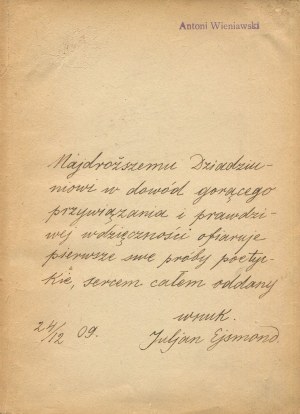 Antoni Wieniawski
Najdroższemu Dziadziu-
niowi w dowód gorącego
przywiązania i prawdzi-
wej wdzięczności ofiaruje
pierwsze swe próby poetyc-
kie, sercem całem oddany
wnuk.
24/12 09. Juljan Ejsmond.